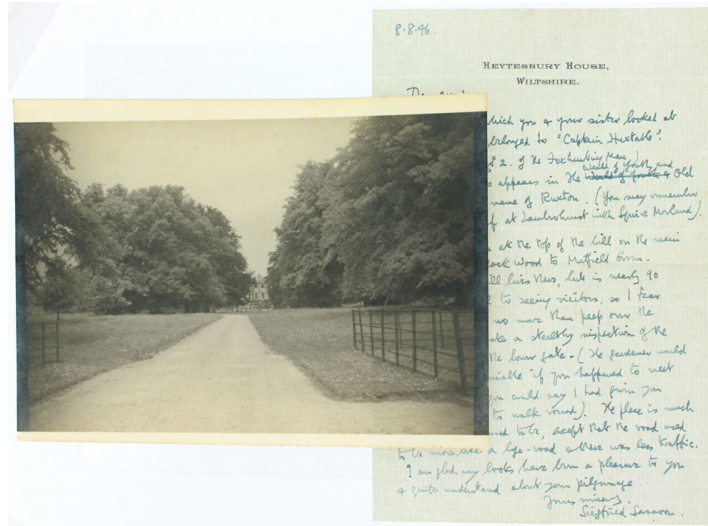 8.8.46.
HEYTESBURY HOUSE,
WILTSHIRE.
which you & your sister looked at
belonged to "Captain Huxtable".
2. of the Foxhunting Man.)
appears in the Weald of Youth, and Old
name of Ruxton. (You may remember
at Lamberhurst with Squire Morland).
at the top of the hill on the main
Wood to Matfield Green.
lives there, but is nearly 90
to seeing visitors, so I fear
no more than peep over the
a stealthy inspection of the
the lower gate - (The gardener would
if you happened to meet
you could say I had given you
to walk round). The place is much
to be, except that the road used
to be more like a bye-road & there was less traffic.
I am glad my books have been a pleasure to you
& quite understand about your pilgrimage.
Yours sincerely
Siegfried Sassoon.